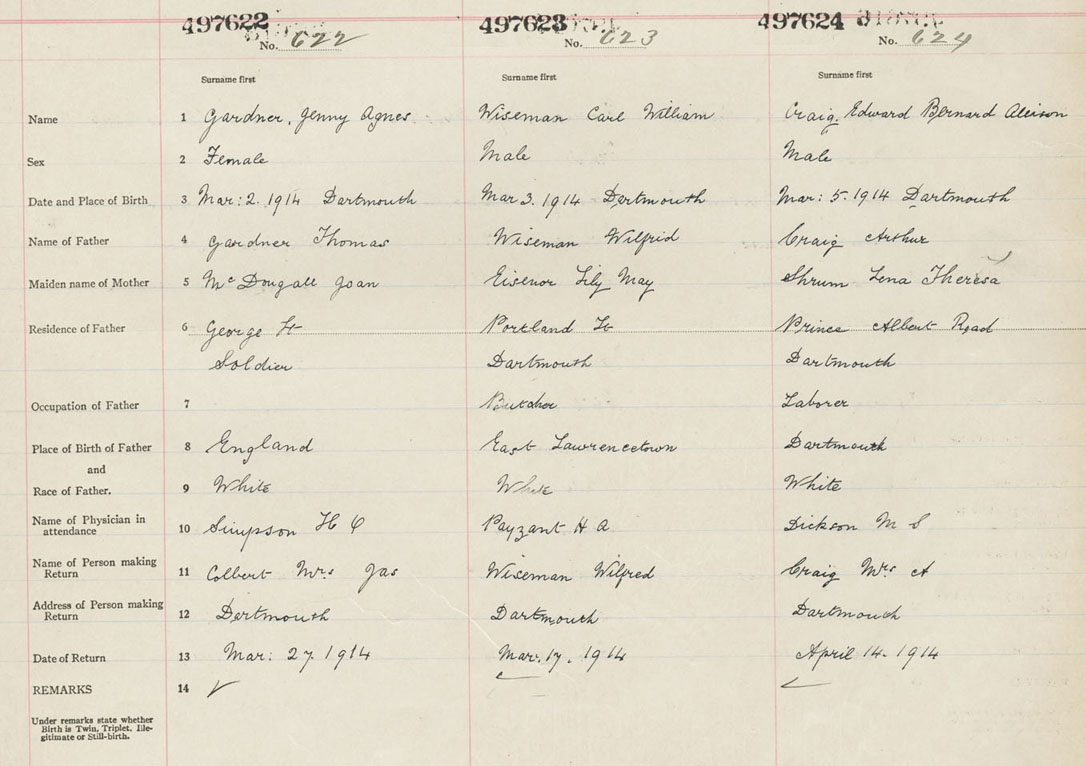 497622 497623 497624
No. 622 No. 623 No. 624
Surname first Surname first Surname first
Name 1 Gardner, Jenny Agnes Wiseman Carl William Craig, Edward Bernard
Sex 2 Female Male Male
Date and Place of Birth 3 Mar: 2. 1914 Dartmouth Mar 3. 1914 Dartmouth Mar: 5. 1914 Dartmouth
Name of Father 4 Gardner Thomas Wiseman Wilfrid Craig Arthur
Maiden name of Mother 5 McDougall Joan Eisenor Lily May Shrum Lena Theresa
Residence of Father 6 George St Portland St Prince Albert Road
Soldier Dartmouth Dartmouth
Occupation of Father 7 Butcher Laborer
Place of Birth of Father 8 England East Lawrencetown Dartmouth
and
Race of Father. 9 White White White
Name of Physician in
attendance 10 Simpson H Payzant H A Dickson M S
Name of Person making
Return 11 Colbert Mrs Jas Wiseman Wilfred Craig Mrs A
Address of Person making
Return 12 Dartmouth Dartmouth Dartmouth
Date of Return 13 Mar: 27 1914 Mar. 17. 1914 April 14. 1914
REMARKS 14
Under remarks state whether
Birth is Twin, Triplet, Ille-
gitimate or Still-birth.